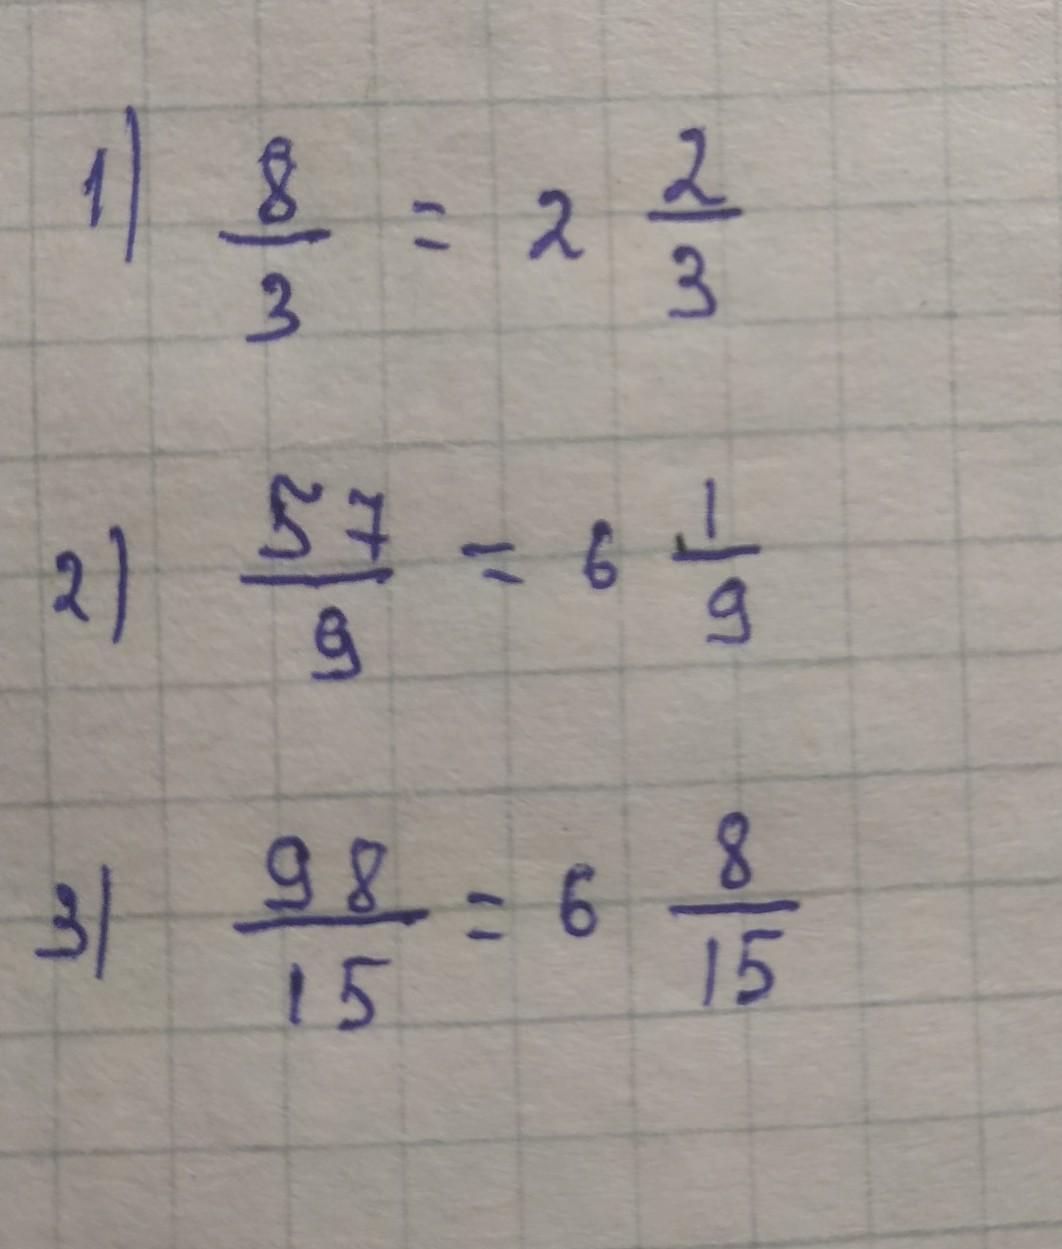 1) 8/3 = 2 2/3
2) 57/9 = 6 1/9
3) 98/15 = 6 8/15